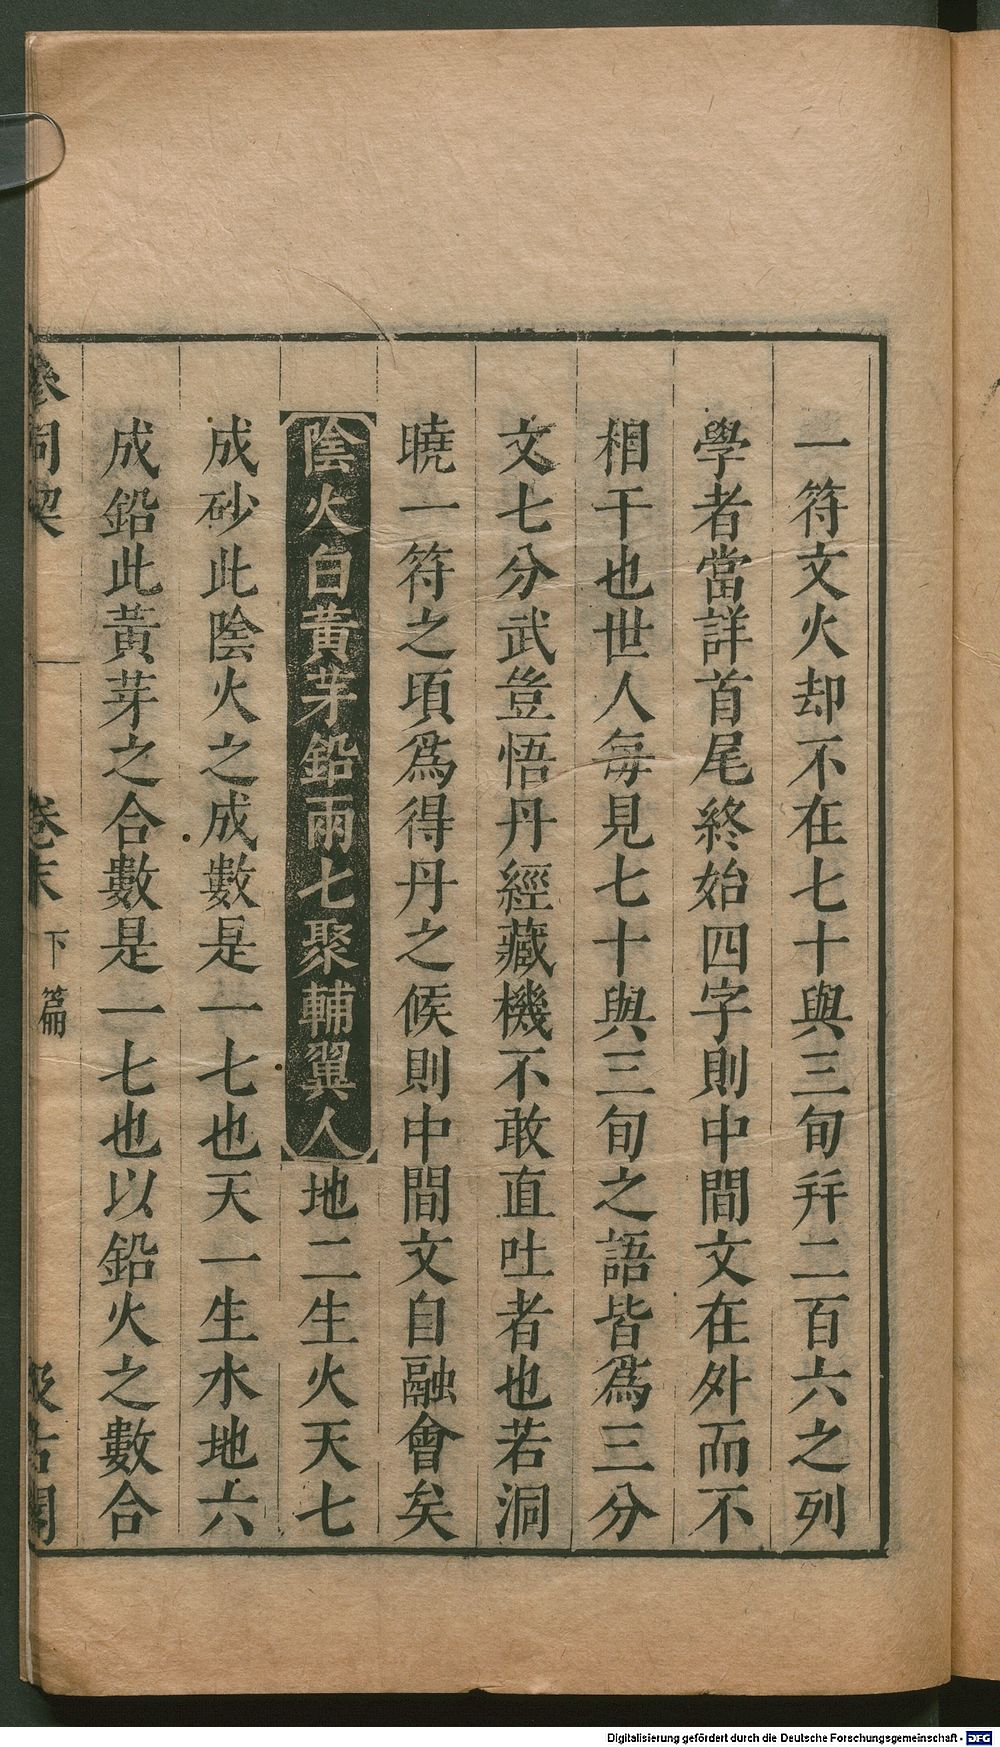 一符文火却不在七十與三旬幷二百六之列
學者當詳首尾終始四字則中間文在外而不
相干也世人每見七十與三旬之語皆爲三分
文七分武豈悟丹經藏機不敢直吐者也若洞
曉一符之頃爲得丹之候則中間文自融會矣
陰火白黃芽鉛兩七聚輔翼人地二生火天七
成砂此陰火之成數是一七也天一生水地六
成鉛此黃芽之合數是一七也以鉛火之數合
參同契 卷末 下篇 汲古閣
Digitalisierung gefördert durch die Deutsche Forschungsgemeinschaft - DFG